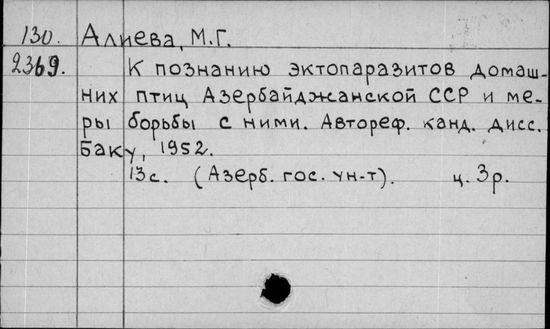 130. Алиева, М.Г.
2369. К познанию эктопаразитов домаш-
них птиц Азербайджанской ССР и ме-
ры борьбы с ними. Автореф. канд. дисс.
Баку, 1952.
13с. (Азерб. гос. ун-т). ц. 3р.